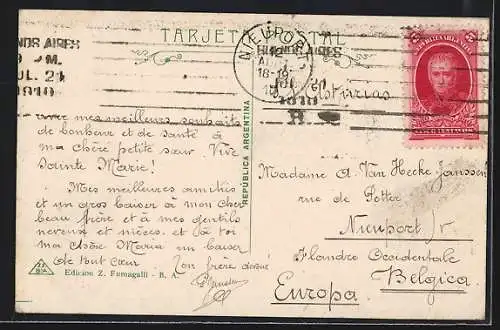 TARJETA POSTAL
NOS AIRES
9 M.
JUL. 21
1910
NIEUPORT
BUENOS AIRES
18-19
1910
R.
Asturias
REPUBLICA ARGENTINA
Avec mes meilleurs souhaits
de bonheur et de santé à
ma chère petite sœur. Vive
Sainte Marie!
Mes meilleures amitiés
et un gros baiser à mon cher
beau frère et à mes gentils
neveux et nièces. et à toi
ma chère Maria un baiser
de tout cœur
Ton frère dévoué
Edicion Z. Fumagalli - B. A.
Madame A. Van Hecke-Janssens
rue de Potter
Nieuport /
Flandre Occidentale
Belgica
Europa